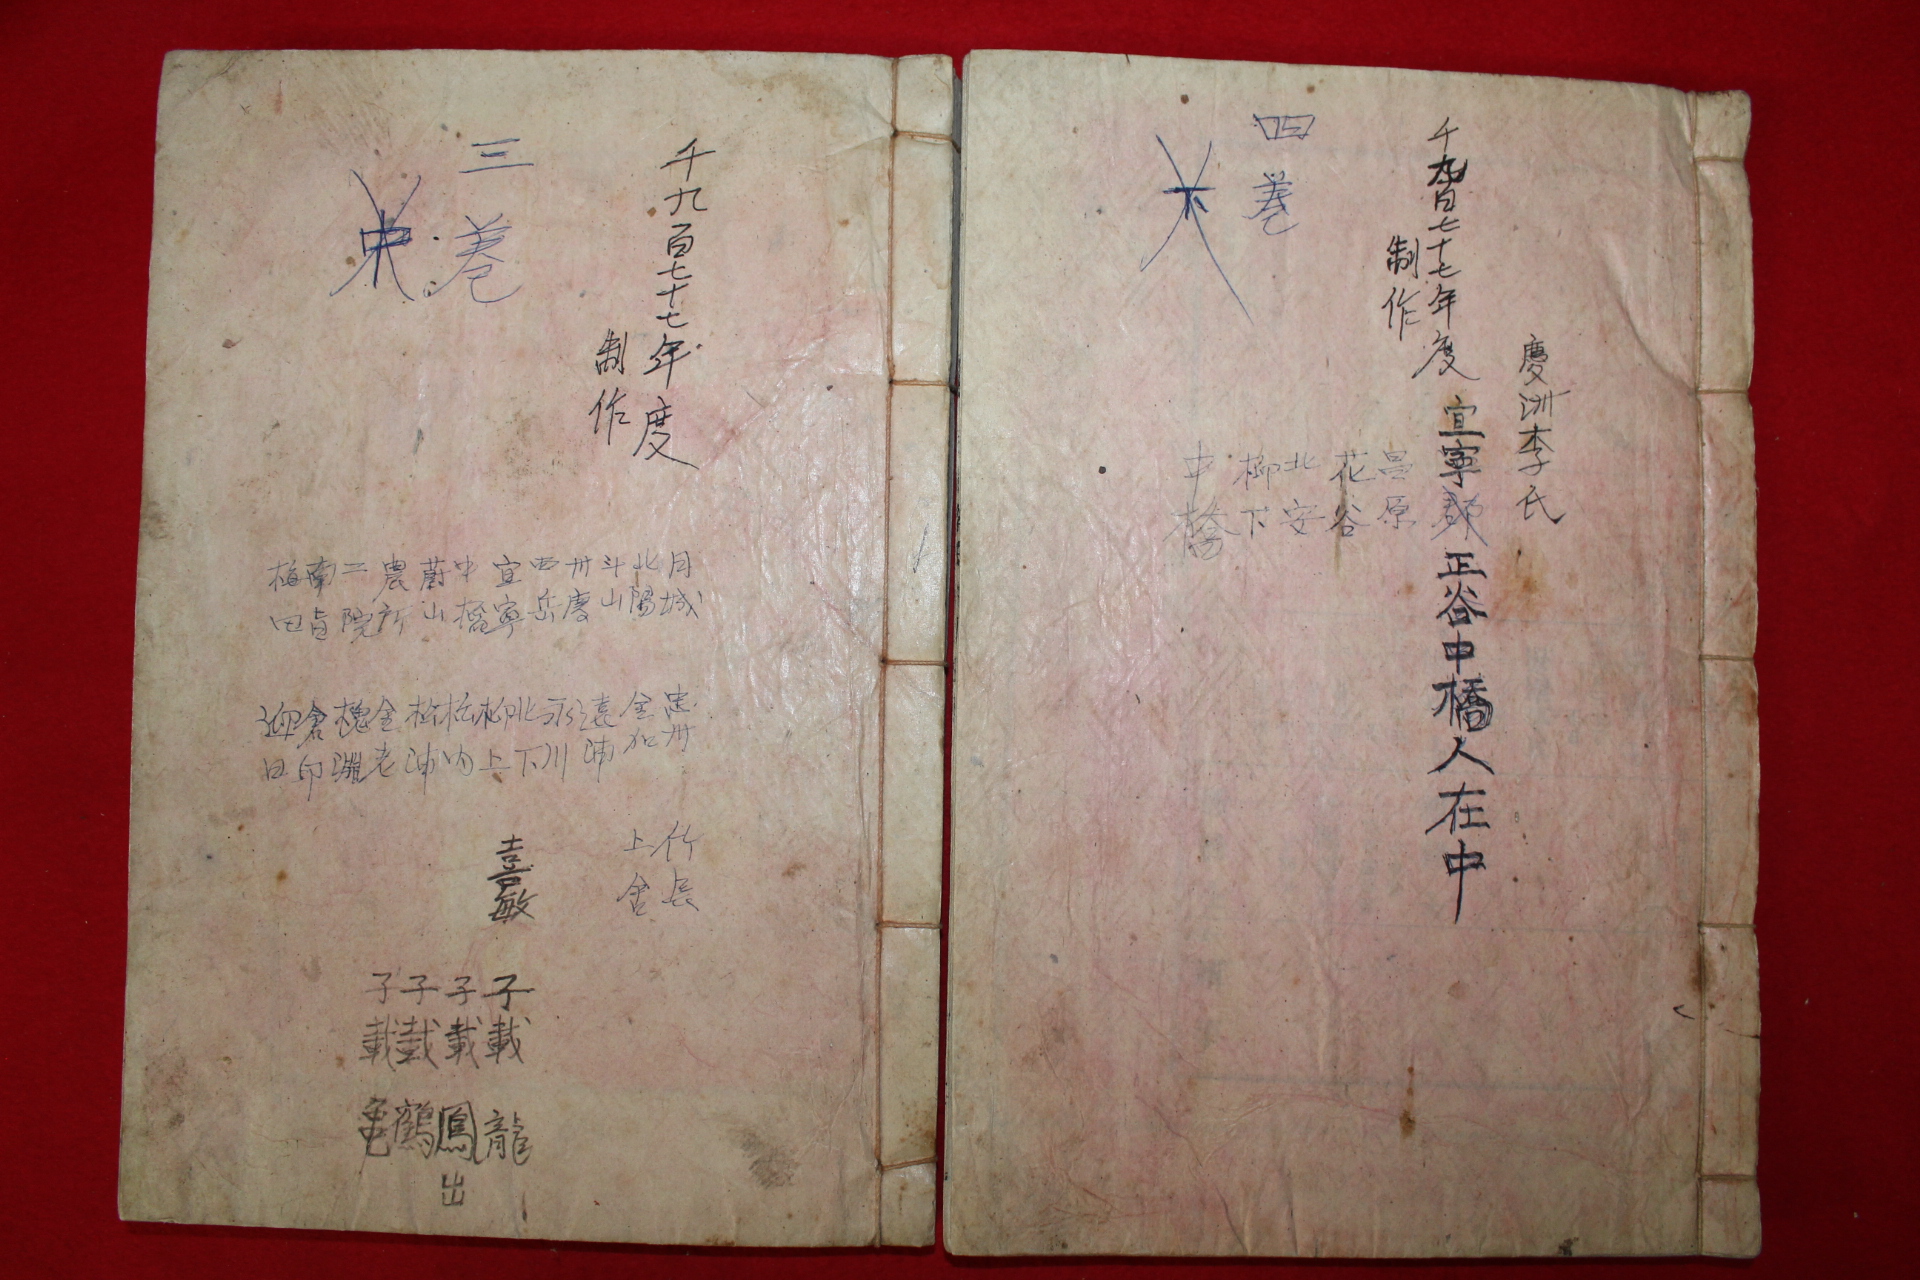 千九百七十七年度
制作
三巻
中
月城
北陽
斗山
卅慶
西岳
宜寧
中橋
蔚山
農所
二院
南旨
梅田
忠州
金加
遠浦
永川
北下
柳上
松内
松浦
金老
槐淵
倉印
迎日
竹長
上舍
喜敏
子載龍
子載鳳出
子載鶴
子載龜
慶洲李氏
千九百七十七年度
制作
宜寧郡正谷中橋人在中
四巻
下
昌原
花谷
北安
柳下
中橋